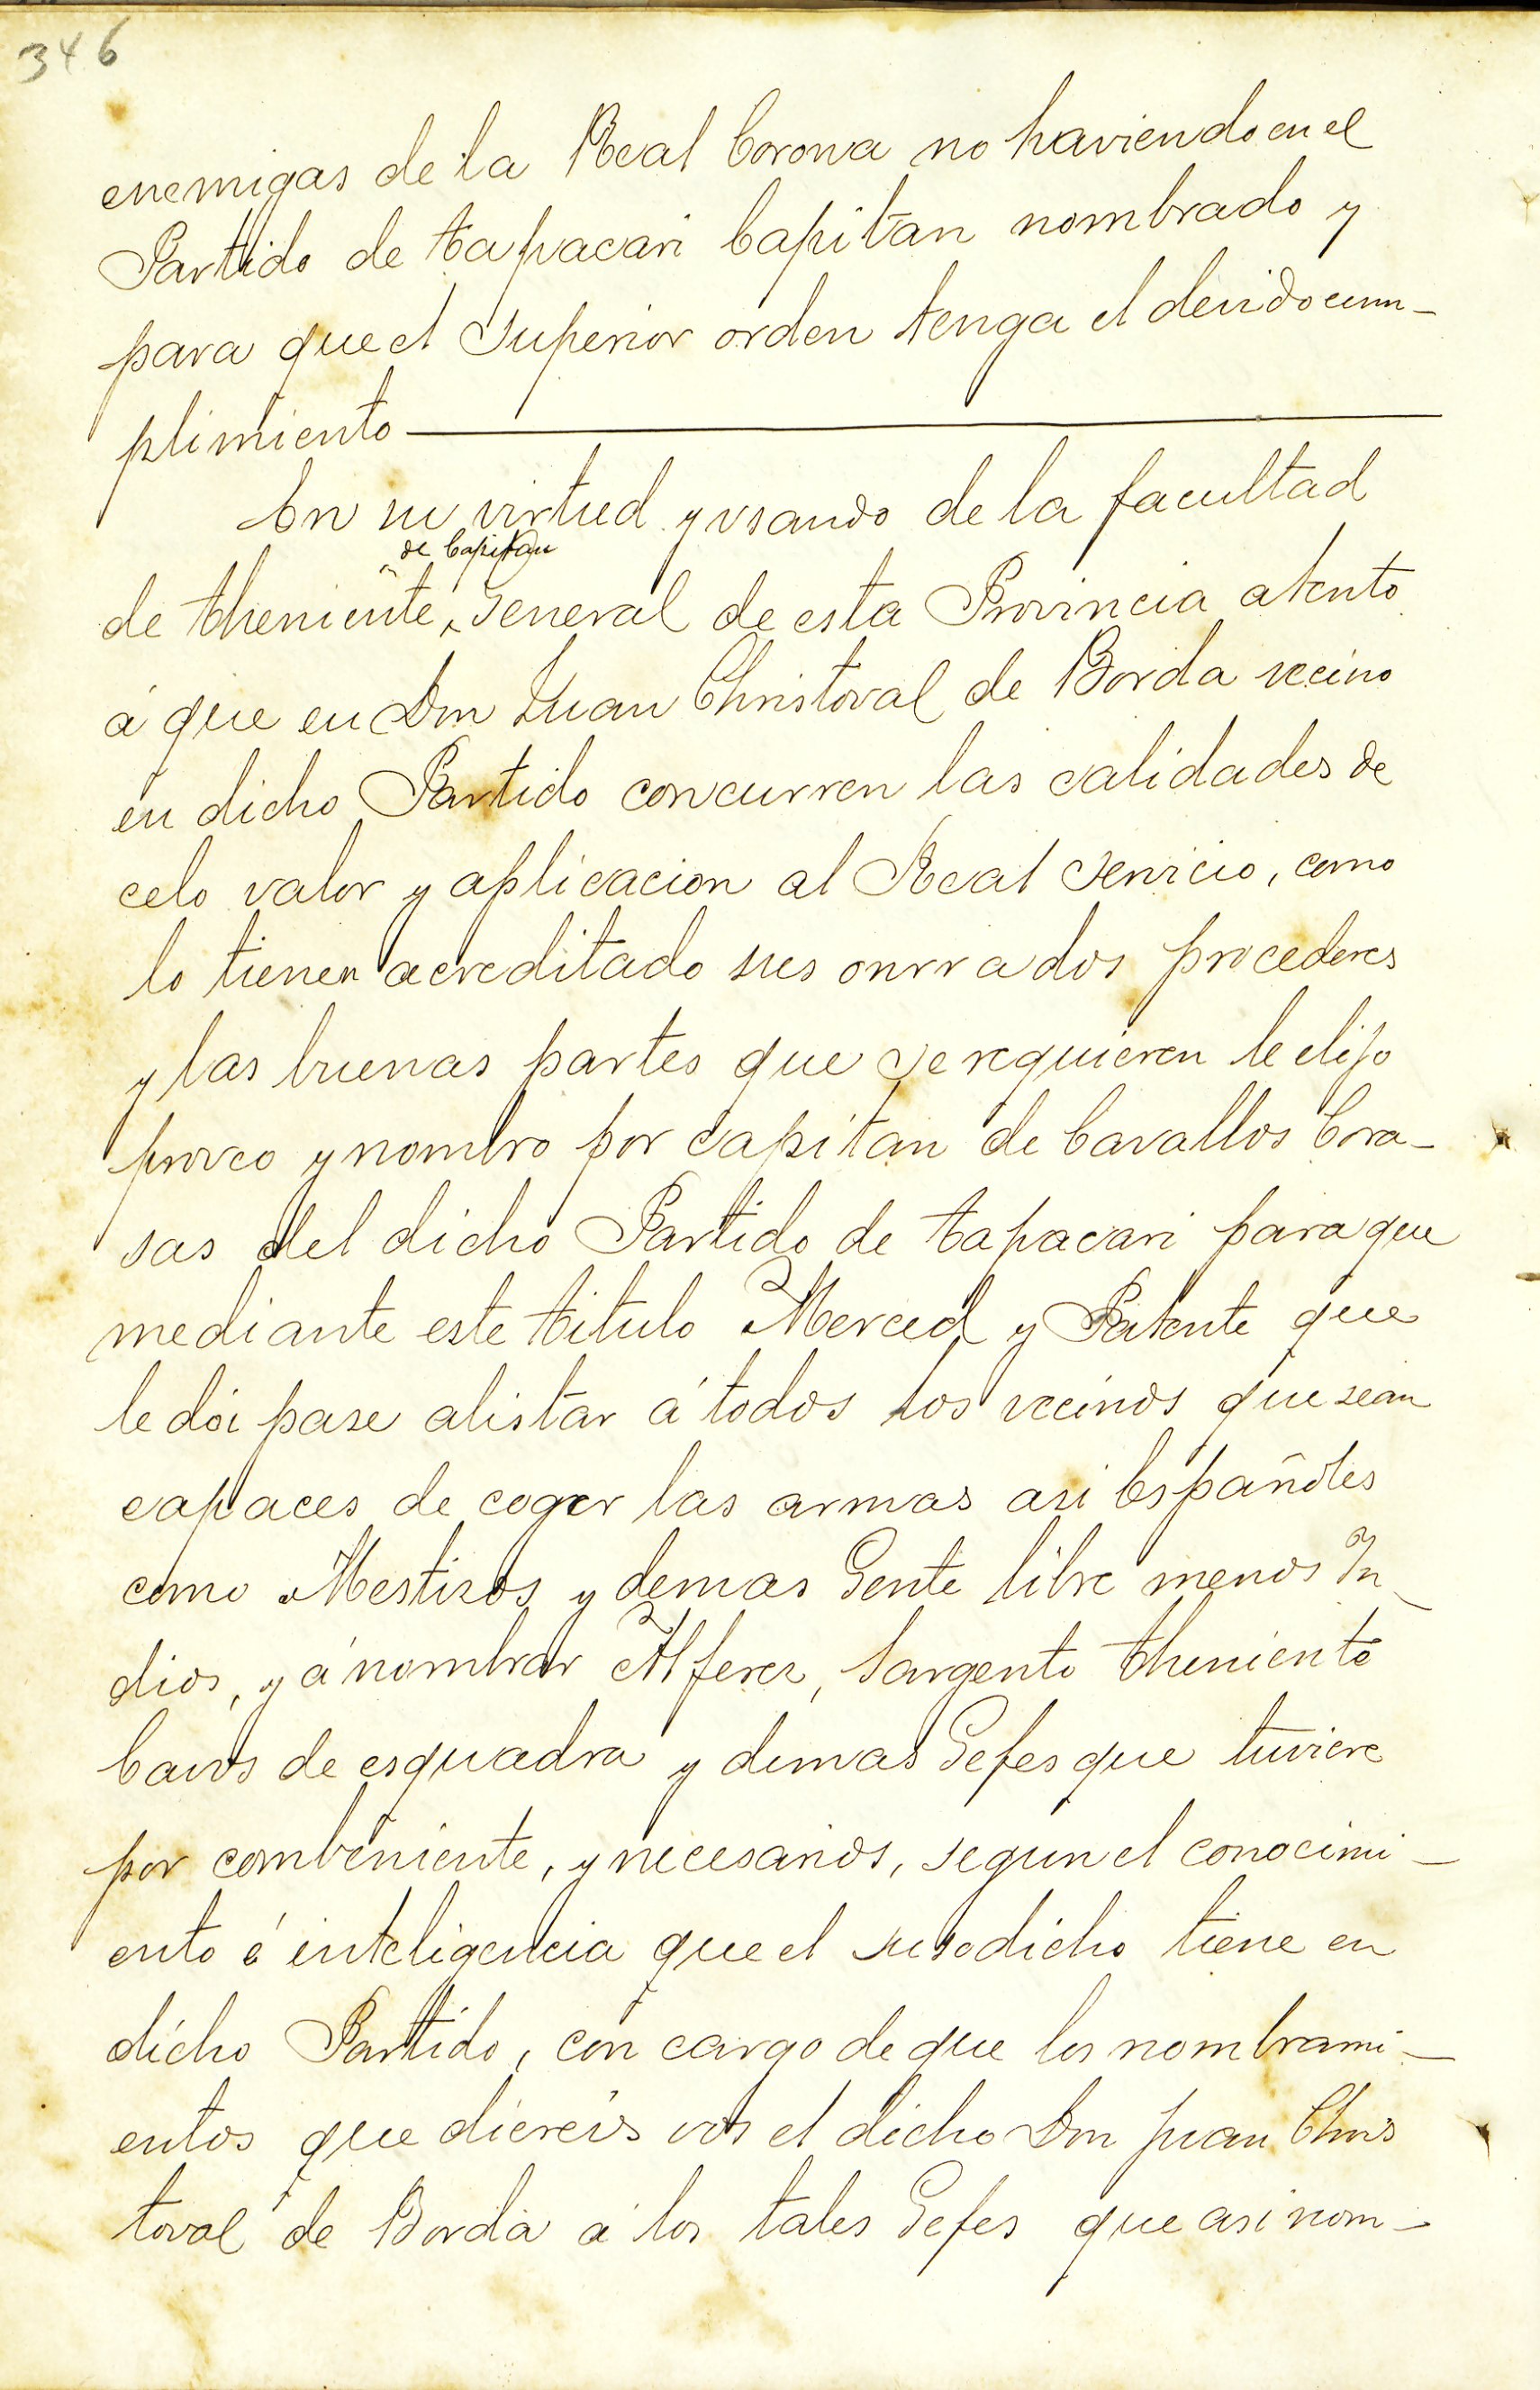 346
enemigas de la Real Corona no haviendo en el
Partido de tapacari Capitan nombrado y
para que el Superior orden tenga el devido cum-
plimiento
En su virtud y vsando de la facultad
de Capitan
de theniente ^ General de esta Provincia atento
á que en Don Juan Christoval de Borda vecino
en dicho Partido concurren las calidades de
celo valor y aplicacion al Real Servicio, como
lo tienen acreditado sus onrrados procederes
y las buenas partes que se requieren le elijo
proveo y nombro por capitan de Cavallos Cora-
sas del dicho Partido de tapacari para que
mediante este titulo Merced y Patente que
le dói pase alistar á todos los vecinos que sean
capaces de coger las armas asi Españoles
como Mestisos y demas Gente libre menos In
dios, y á nombrar Alferez, Sargento theniente
Cavos de esquadra y demas Gefes que tuviere
por combeniente, y necesarios, segun el conocimi-
ento é inteligencia que el susodicho tiene en
dicho Partido, con cargo de que los nombrami-
entos que diereis vos el dicho Don Juan Chris
toval de Borda á los tales Gefes que asi nom-